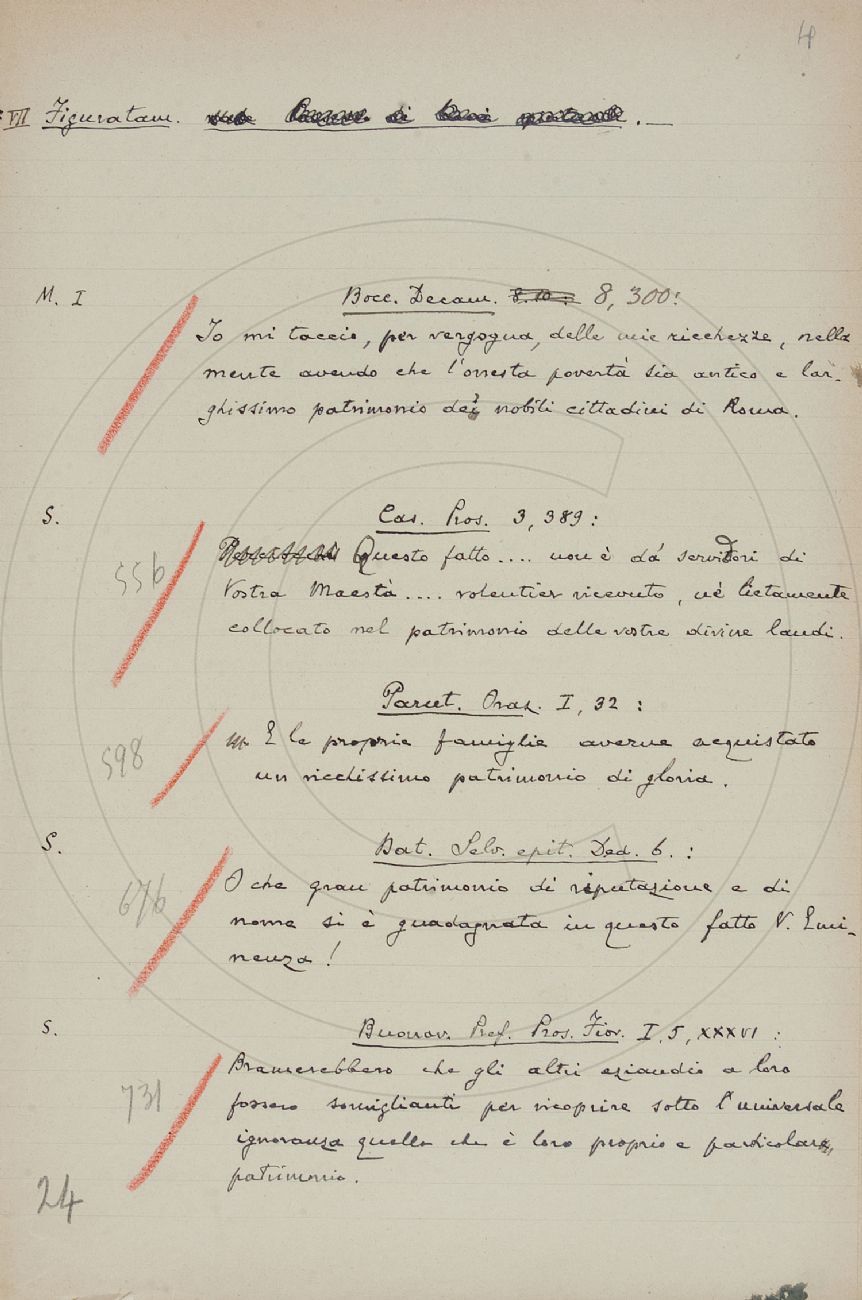 4
VII Figuratam. .—
M. I Bocc. Decam. 8, 300:
Io mi taccio, per vergogna, delle mie ricchezze, nella
mente avendo che l'onesta povertà sia antico e lar-
ghissimo patrimonio dei nobili cittadini di Roma.
S. Cas. Pros. 3, 389:
556 Questo fatto.... non è da' servidori di
Vostra Maestà.... volentier ricevuto, nè lietamente
collocato nel patrimonio delle vostre divine laudi.
Parut. Oraz. I, 32:
598 E le proprie famiglie averne acquistato
un ricchissimo patrimonio di gloria.
S. Bat. Selv. epit. Ded. 6.:
676 O che gran patrimonio di riputazione e di
nome si è guadagnata in questo fatto V. Emi-
nenza!
S. Buonav. Pref. Pros. Fior. I, 5, XXXVI:
731 Bramerebbero che gli altri eziandio a loro
fossero somiglianti per ricoprire sotto l'universale
ignoranza quello che è loro proprio e particolare
patrimonio.
24